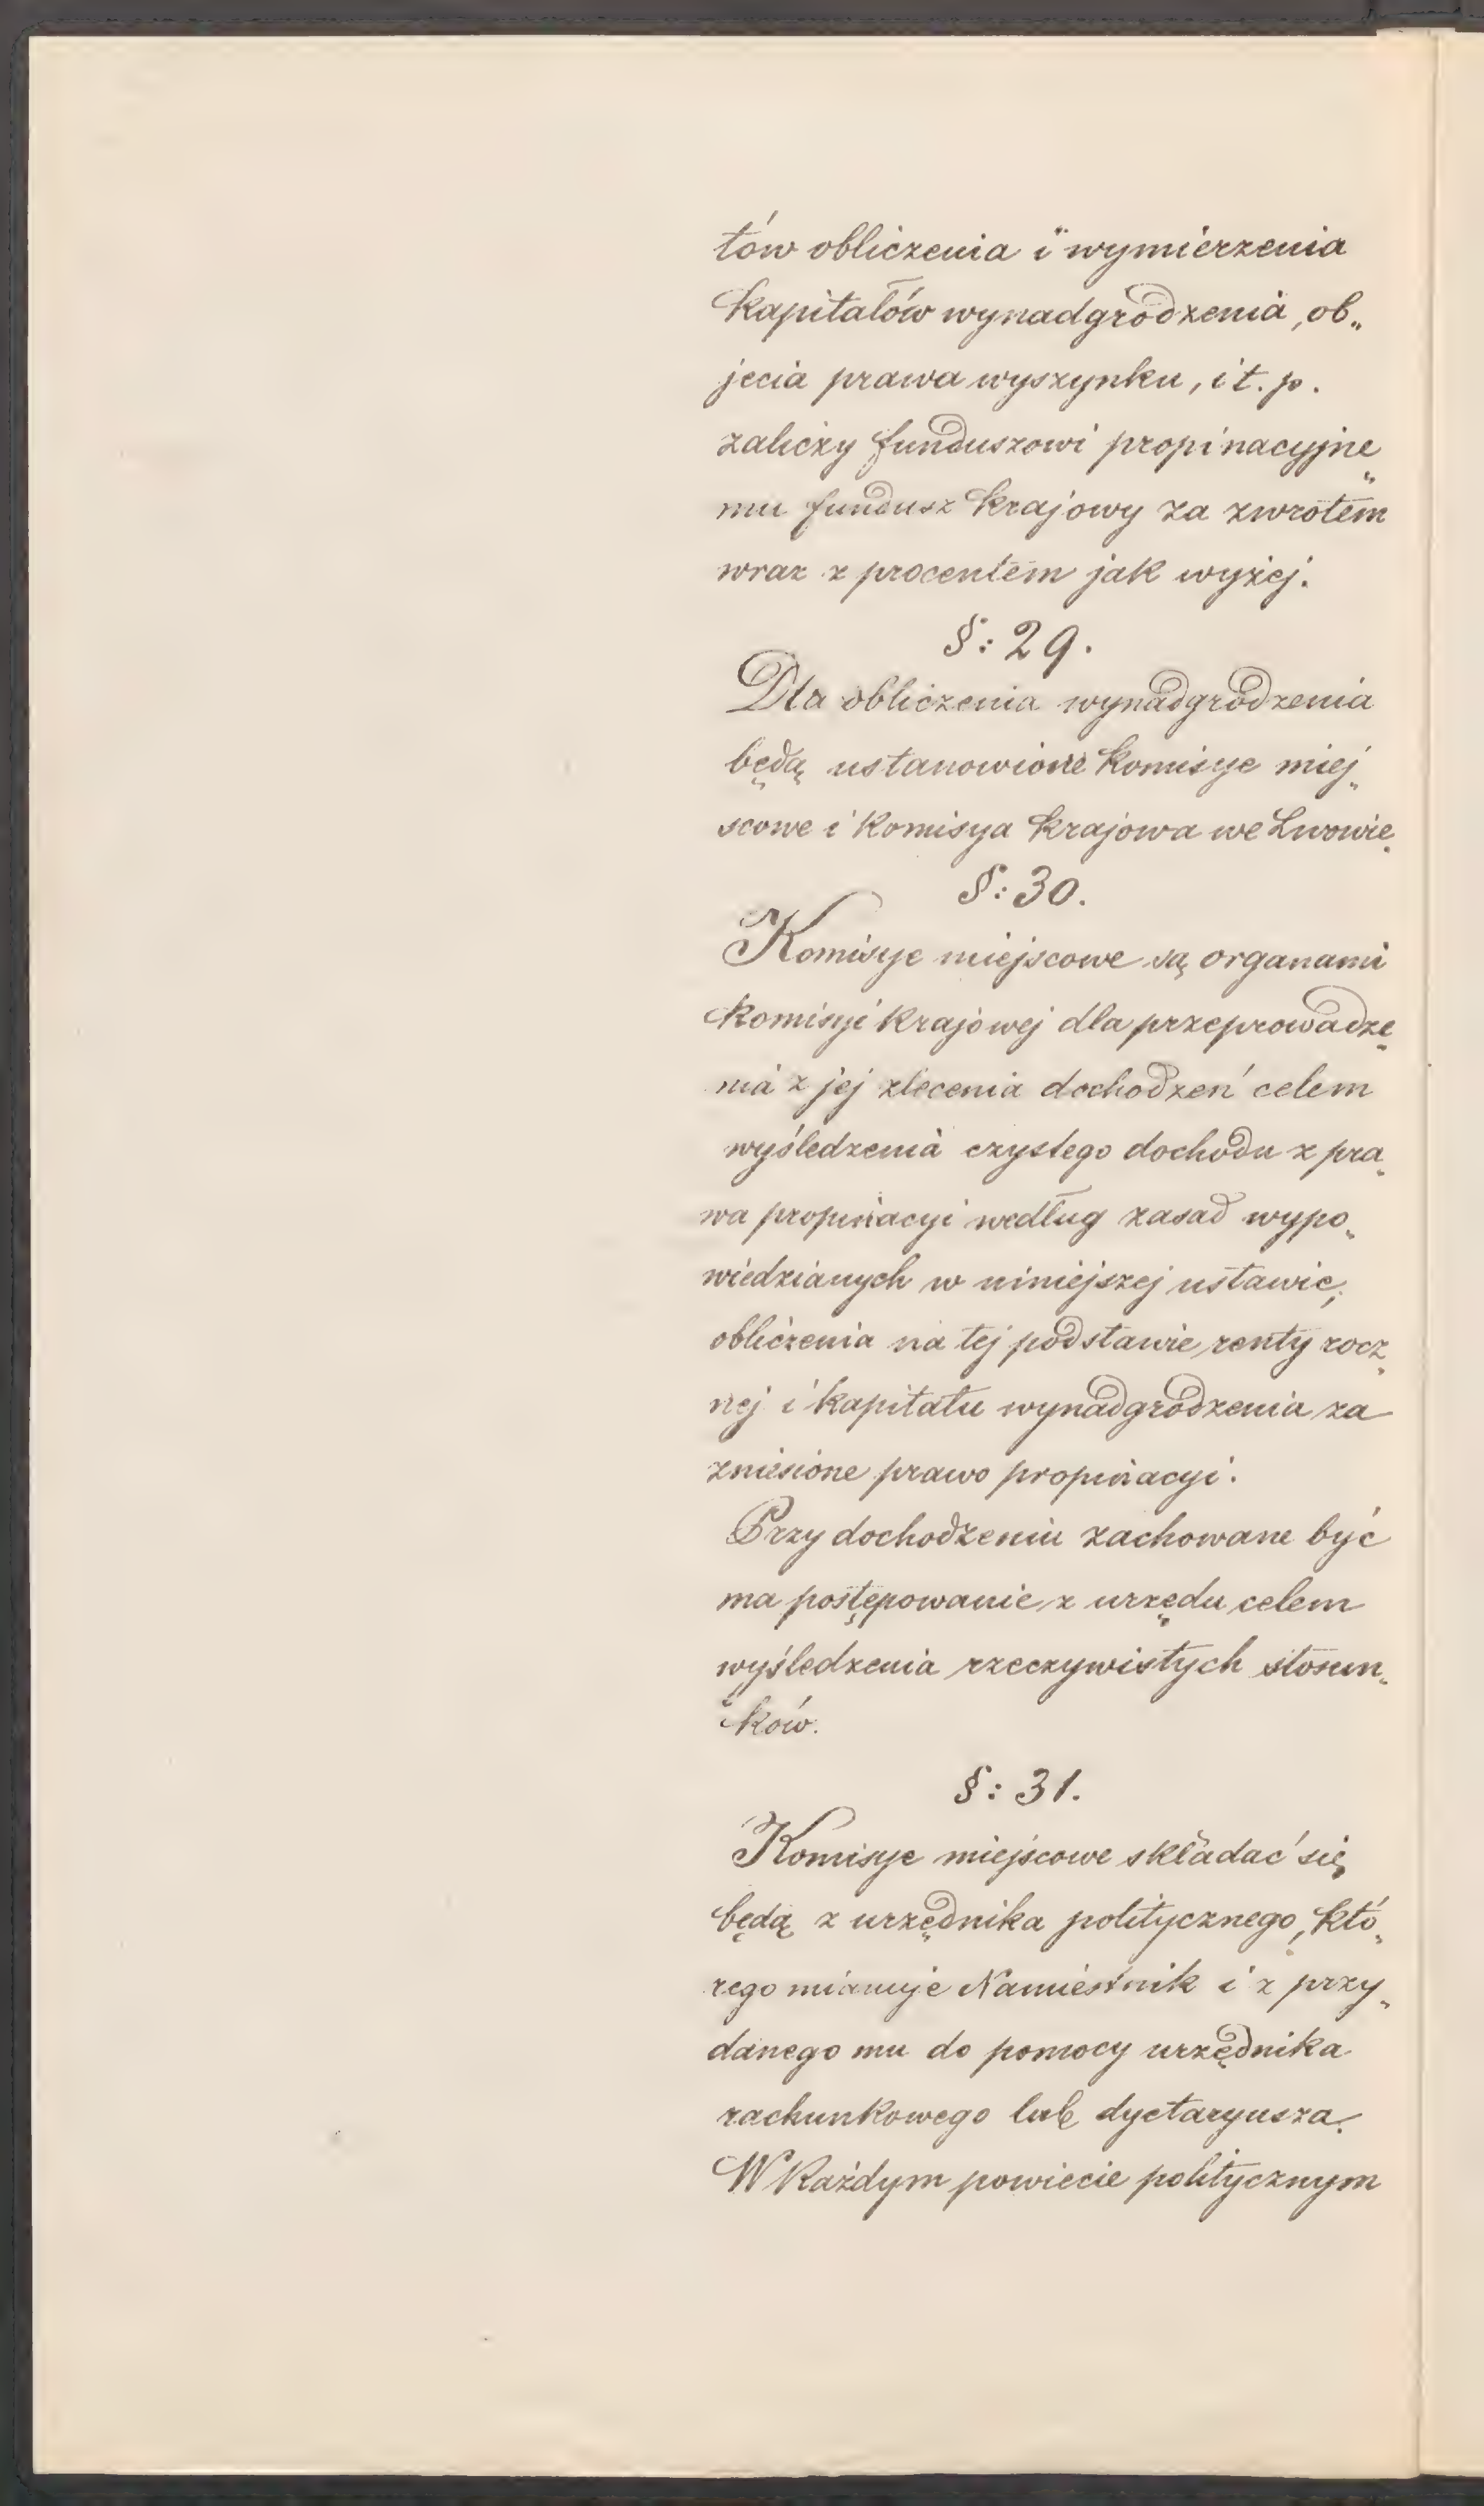 tów obliczenia i wymierzenia
kapitałów wynadgrodzenia, ob„
jecia prawa wyszynku, i t. p.
zaliczy funduszowi propinacyjne„
mu fundusz krajowy za zwrotem
wraz z procentem jak wyżej.
§: 29.
Dla obliczenia wynadgrodzenia
będą ustanowione Komisye miej„
scowe i Komisya krajowa we Lwowie.
§: 30.
Komisye miejscowe są organami
Komisyi Krajowej dla przeprowadze„
nia z jej zlecenia dochodzeń celem
wyśledzenia czystego dochodu z pra„
wa propinacyi według zasad wypo„
wiedzianych w niniejszej ustawie,
obliczenia na tej podstawie renty rocz„
nej i kapitału wynadgrodzenia za
zniesione prawo propinacyi.
Przy dochodzeniu zachowane być
ma postępowanie z urzędu celem
wyśledzenia rzeczywistych stosun„
ków.
§: 31.
Komisye miejscowe składać się
będą z urzędnika politycznego, któ„
rego mianuje Namiestnik i z przy„
danego mu do pomocy urzędnika
rachunkowego lub dyetaryusza.
W Każdym powiecie politycznym